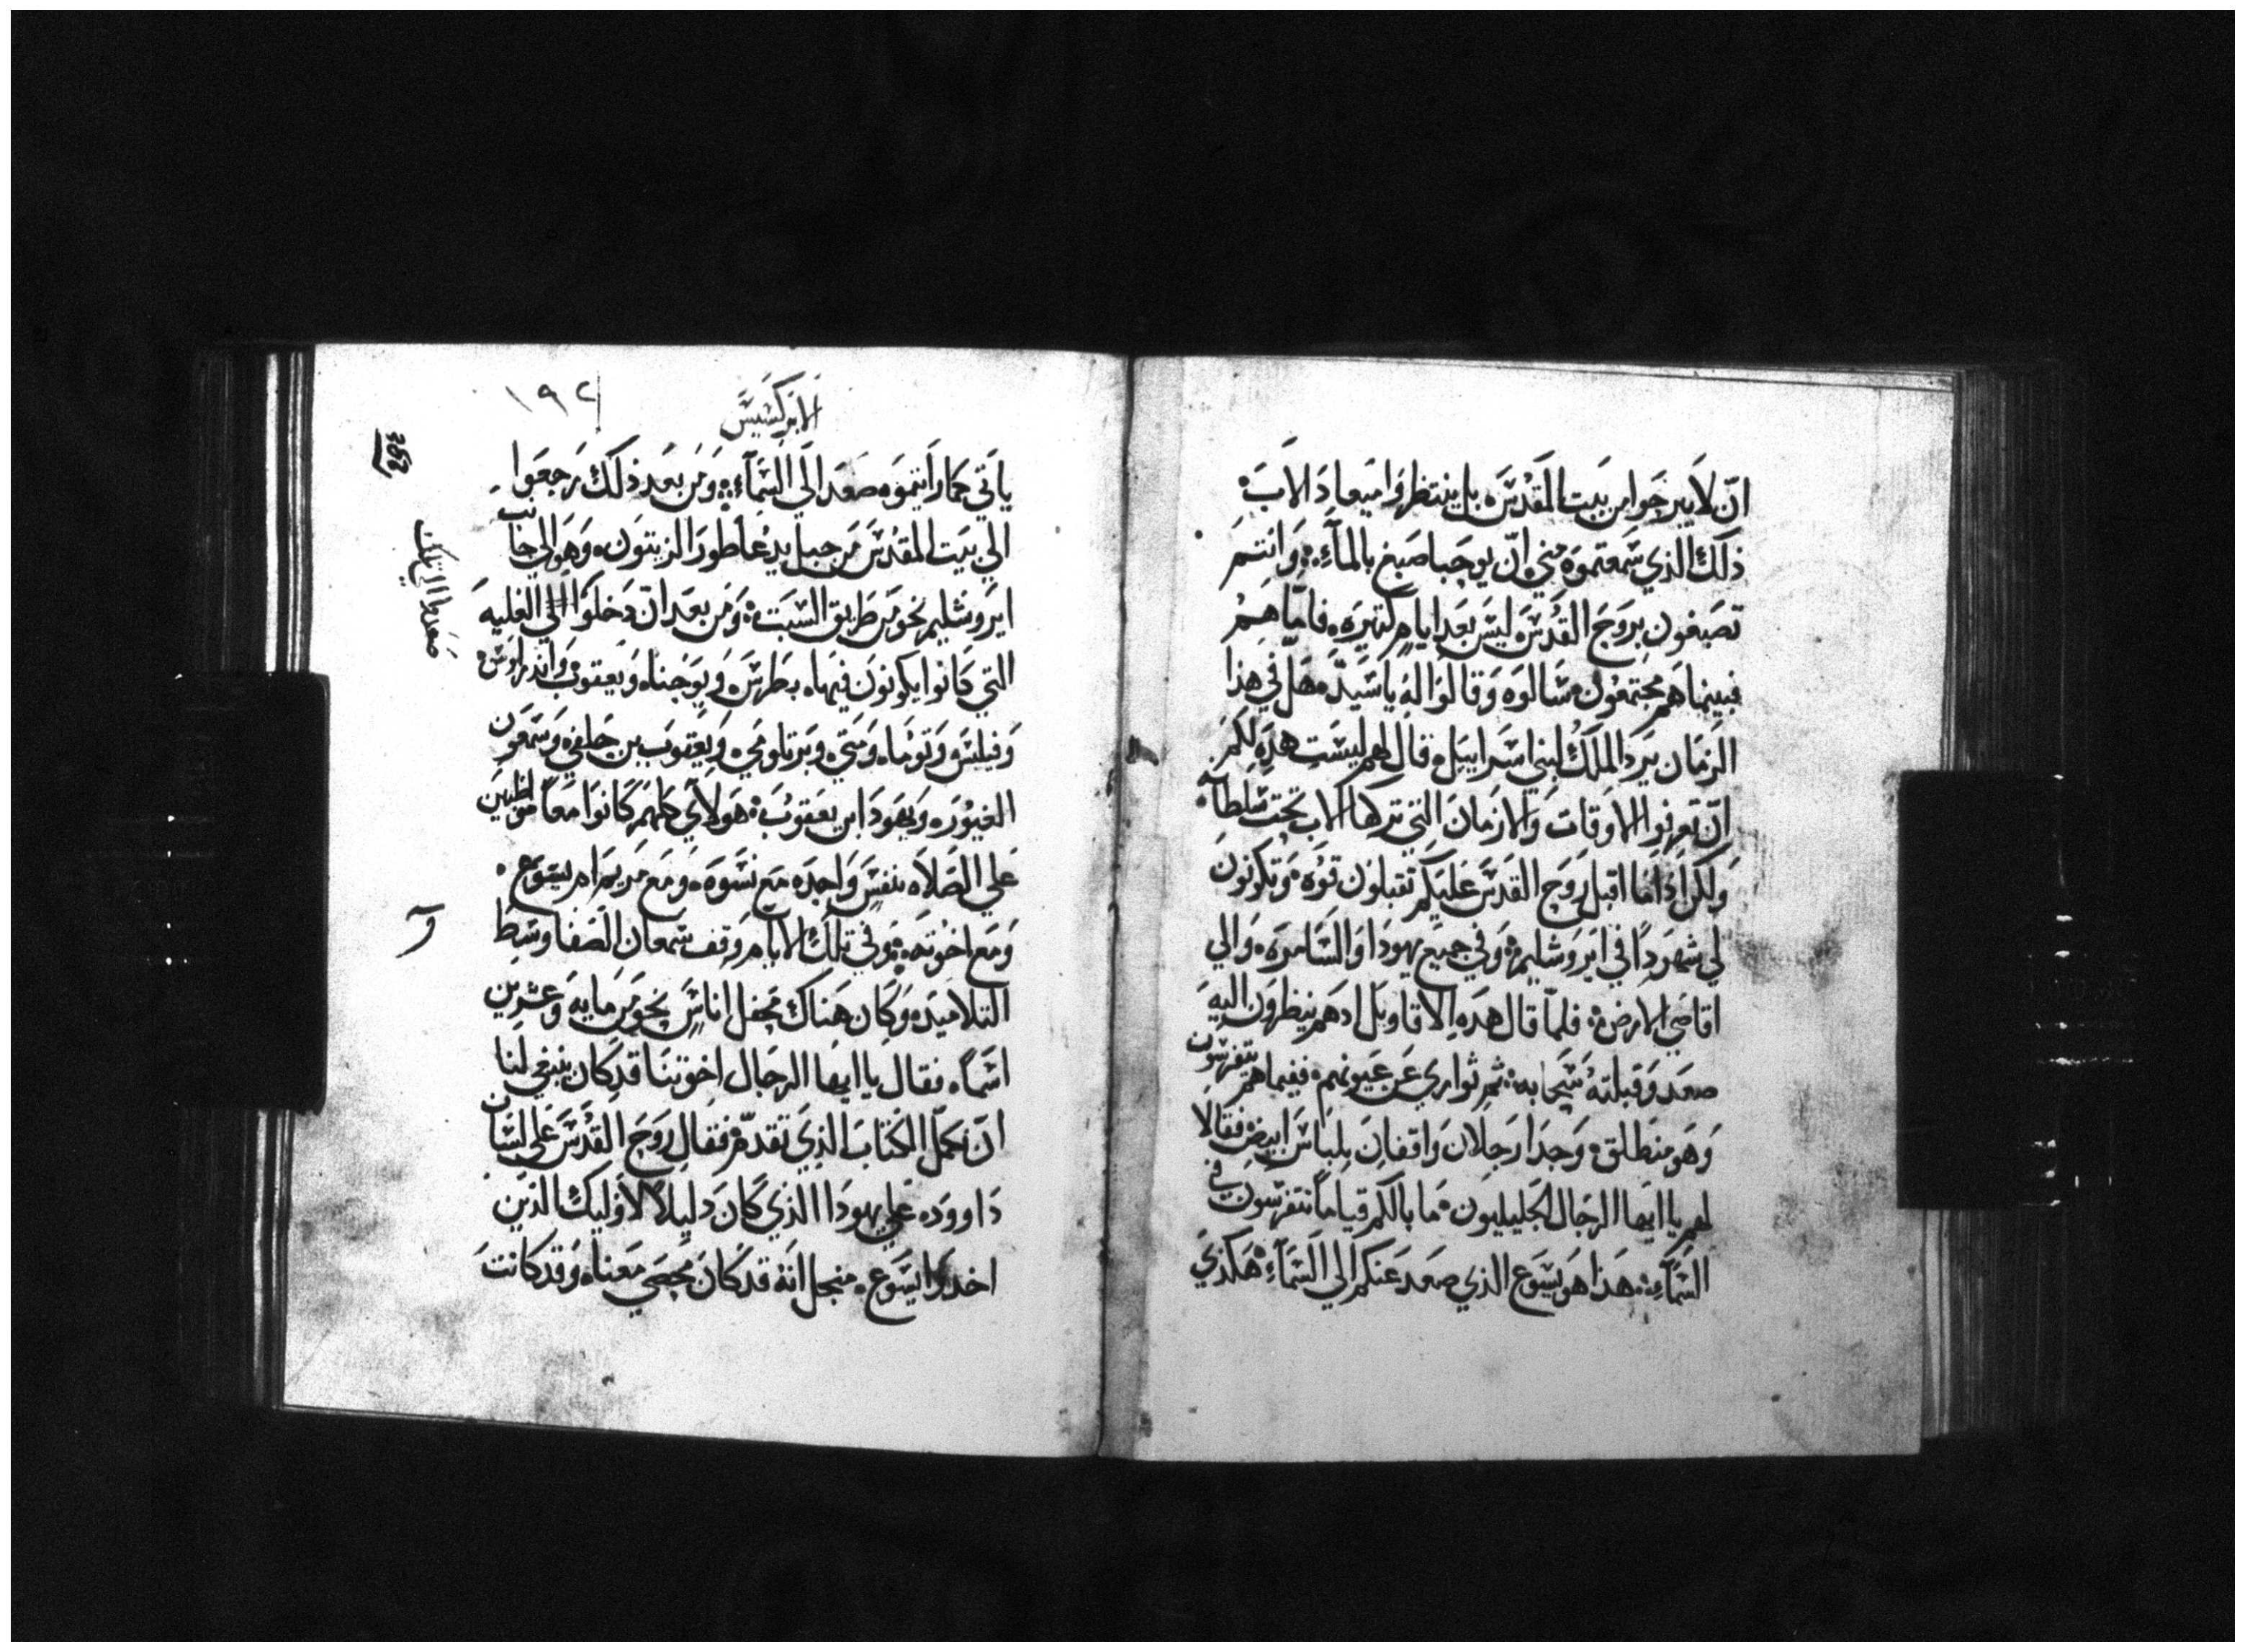 ان لا يبرحوا من بيت المقدس بل ينتظروا ميعاد الاب
ذلك الذي سمعتموه مني ان يوحنا صبغ بالماء وانتم
تصبغون بروح القدس ليس بعد ايام كتيره فاما هم
فبينما هم مجتمعون سالوه وقالوا له يا سيد هل في هذا
الزمان يرد الملك لبني اسراييل قال لهم ليست هذه لكم
ان تعرفوا الاوقات والازمان التي تركها الاب تحت سلطانه
ولكن اذا ما اقبل روح القدس عليكم تقبلون قوه وتكونون
لي شهودا في ايروشليم وفي جميع يهودا والسامره والي
اقاصي الارض فلما قال هده الاقاويل ادهم ينظرون اليه
صعد وقبلته سحابه ثم توارى عن عيونهم ففيما هم يتفرسون
وهو منطلق وجدا رجلان واقفان بلباس ابيض فقالا
لهم يا ايها الرجال الجليليون ما بالكم قياما تتفرسون في
السماء هذا هو يسوع الذي صعد عنكم الي السماء هكذي
الابركسيس
١٩٢
ياتي كما رايتموه صعد الي السماء ومن بعد ذلك رجعوا
الي بيت المقدس من جبل يدعا طور الزيتون وهو الي جانب
ايروشليم نحو من طريق السبت ومن بعد ان دخلوا الي العليه
التي كانوا يكونون فيها بطرس ويوحنا ويعقوب واندراوس
وفيلبس وتوما ومتي وبرتلومي ويعقوب بن حلفي وسمعون
الغيور ويهودا ابن يعقوب هولاي كلهم كانوا معا مواظبين
علي الصلاه بنفس واحده مع نسوه ومع مريم ام يسوع
ومع اخوته وفي تلك الايام وقف سمعان الصفا وسط
التلاميد وكان هناك محفل اناس نحو من مايه وعشرين
اسما فقال يا ايها الرجال اخوتنا قد كان ينبغي لنا
ان نكمل الكتاب الذي تقدم فقال روح القدس علي لسان
داوود علي يهودا الذي كان دليلا لاوليك الذين
اخدوا يسوع منجل انه قد كان محصي معنا وقد كانت